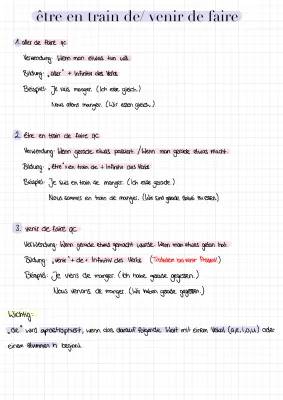 être en train de/ venir de faire
1. aller de faire qc
Verwendung: Wenn man etwas tun will.
Bildung: „aller" + Infinitiv des Verbs
Beispiel: Je vais manger. (Ich esse gleich.)
Nous allons manger. (Wir essen gleich.)
2. être en train de faire qc
Verwendung: Wenn gerade etwas passiert. / Wenn man gerade etwas macht.
Bildung: „être" + en train de + Infinitiv des Verbs
Beispiel: Je suis en train de manger. (Ich esse gerade.)
Nous sommes en train de manger. (Wir sind gerade dabei zu essen.)
3. venir de faire qc
Verwendung: Wenn gerade etwas gemacht wurde. Wenn man etwas getan hat.
Bildung: „venir" + de + Infinitiv des Verbs
Beispiel: Je viens de manger. (Ich habe gerade gegessen.)
Nous venons de manger. (Wir haben gerade gegessen.)
Wichtig:
„de" wird apostrophiert, wenn das darauf folgende Wort mit einem Vokal (a,e,i,o,u) oder
einem stummen h beginnt.